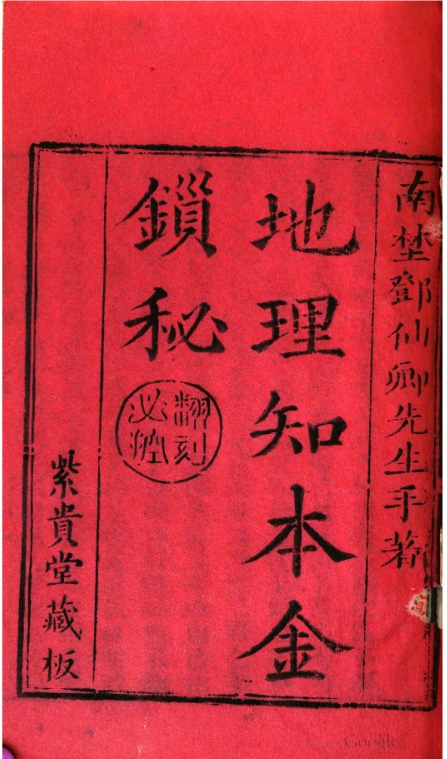 南埜鄧仙卿先生手著
地理知本金
鎖秘
翻刻
必究
紫貴堂藏板
Google